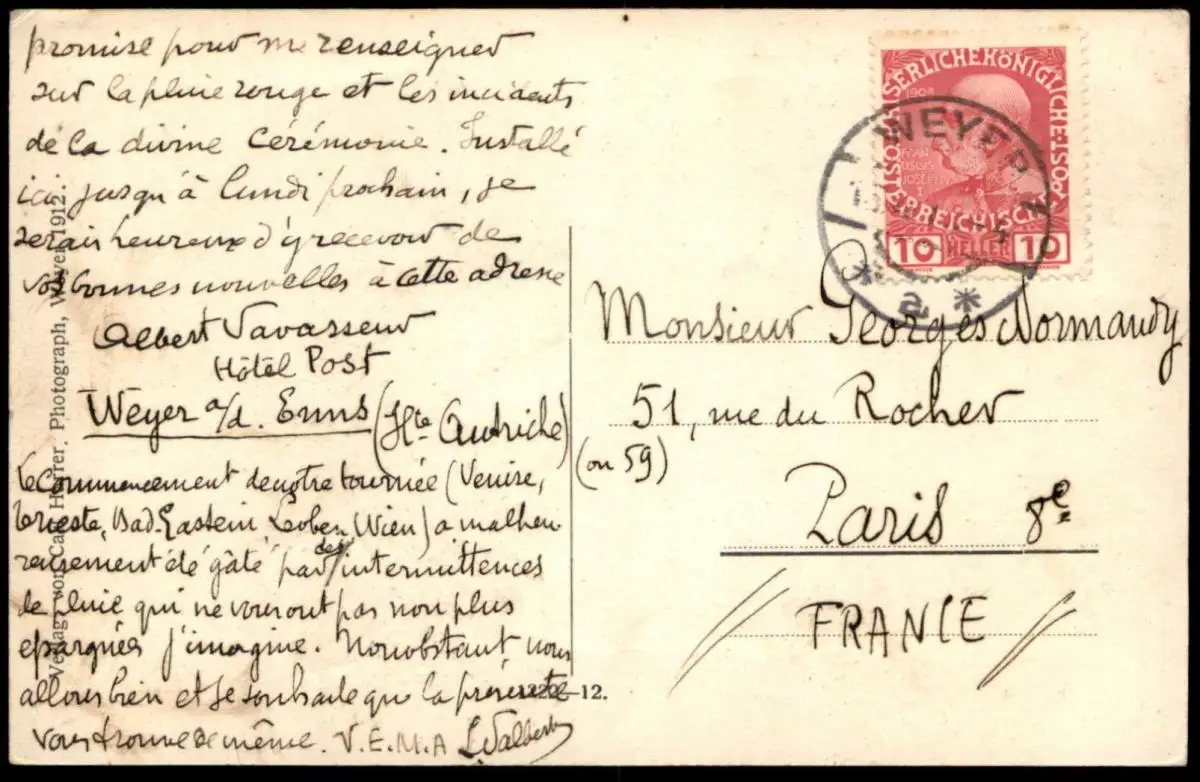 promise pour me renseigner
sur la pluie rouge et les incidents
de la divine Cérémonie. Installé
ici jusqu'à lundi prochain, je
serais heureux d'y recevoir de
vos bonnes nouvelles à cette adresse
Albert Vavasseur
Hôtel Post
Weyer a/d. Enns (Hte Autriche)
Le Commencement de notre tournée (Venise,
Trieste, Bad-Gastein Leoben, Wien) a malheu
reusement été gâté par des intermittences
de pluie qui ne vous ont pas non plus
épargnés j'imagine. Nonobstant nous
allons bien et je souhaite que la présente
vous trouve de même. V.E.M.A
Verlag von Carl Photograph, Weyer 1912.
—12.
KAISERLICHEKÖNIGLICHE ÖSTERREICHISCHE POST
1908
10 HELLER 10
WEYER
a
Monsieur Georges Normandy
51, rue du Rocher
(ou 59)
Paris 8e
FRANCE